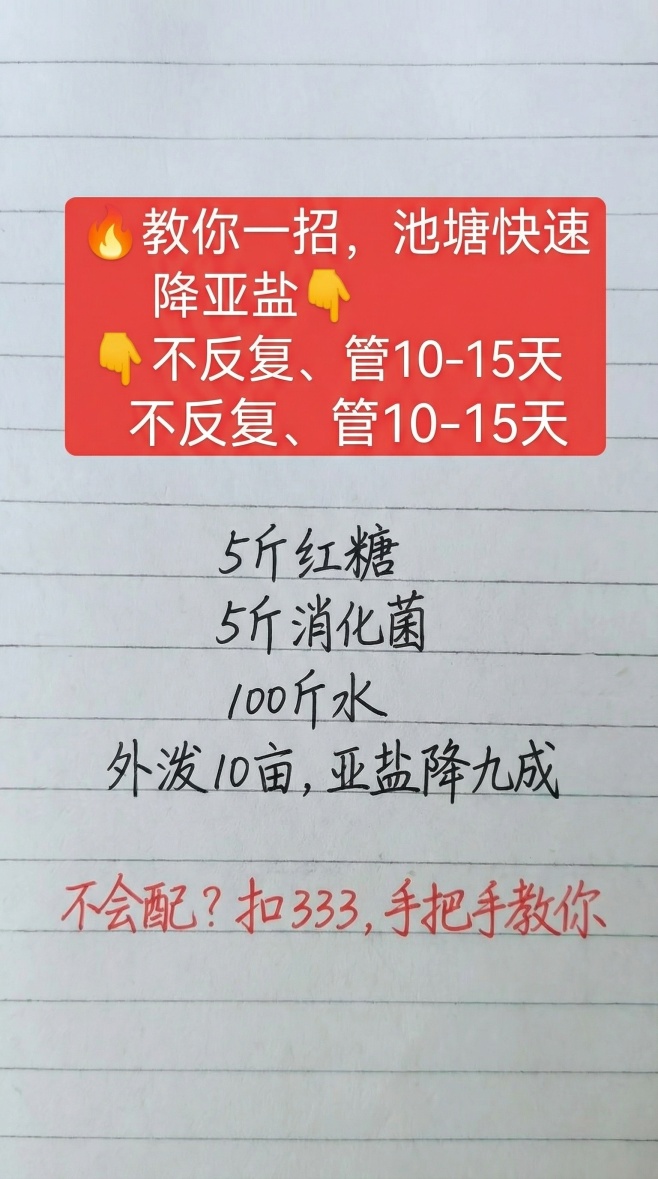 🔥教你一招，池塘快速
降亚盐👇
👇不反复、管10-15天
不反复、管10-15天
5斤红糖
5斤消化菌
100斤水
外泼10亩,亚盐降九成
不会配？扣333,手把手教你